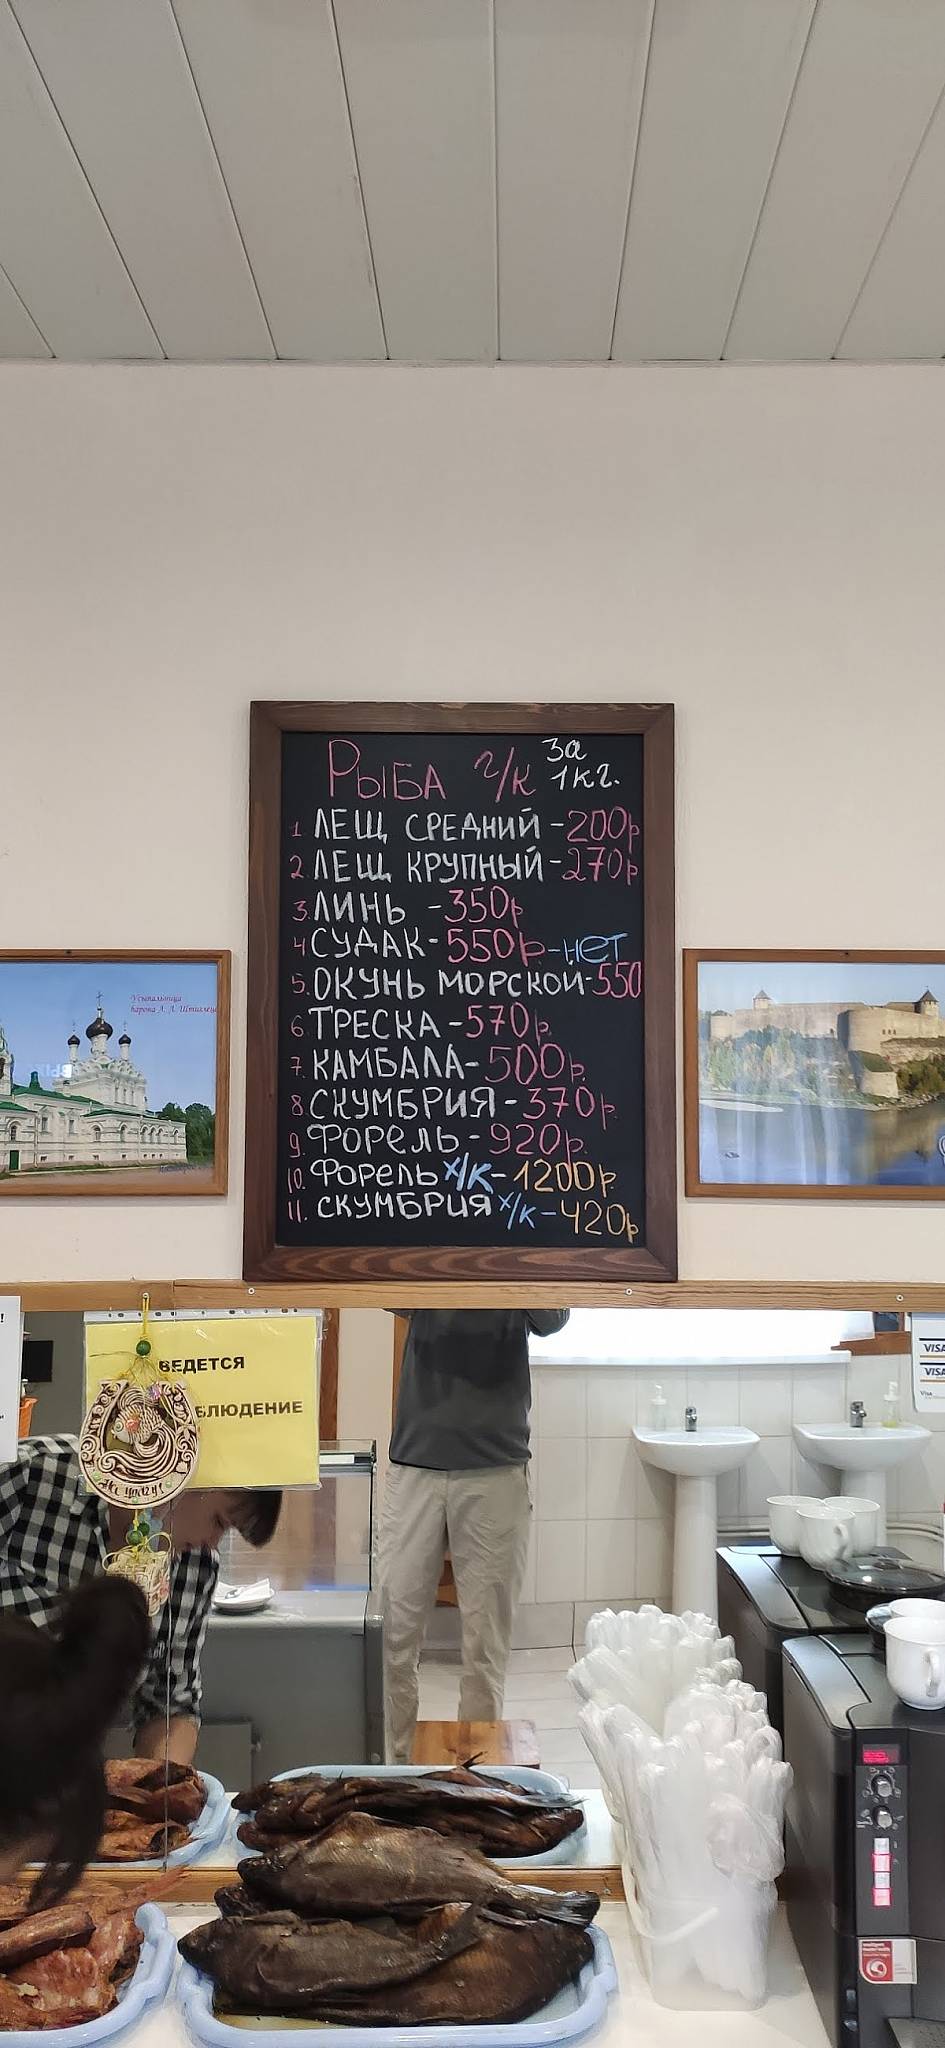 Рыба г/к за 1 кг.
1. ЛЕЩ СРЕДНИЙ - 200р
2. ЛЕЩ КРУПНЫЙ - 270р
3. ЛИНЬ - 350р
4 СУДАК - 550р. - нет
5. ОКУНЬ МОРСКОЙ - 550
6. ТРЕСКА - 570р.
7. КАМБАЛА - 500р.
8. СКУМБРИЯ - 370р.
9. ФОРЕЛЬ - 920р.
10. ФОРЕЛЬ х/к - 1200р.
11. СКУМБРИЯ х/к - 420р
Усыпальница
барона А. Л. Штиглица
ВЕДЕТСЯ
БЛЮДЕНИЕ
На удачу!
VISA
VISA
VISA